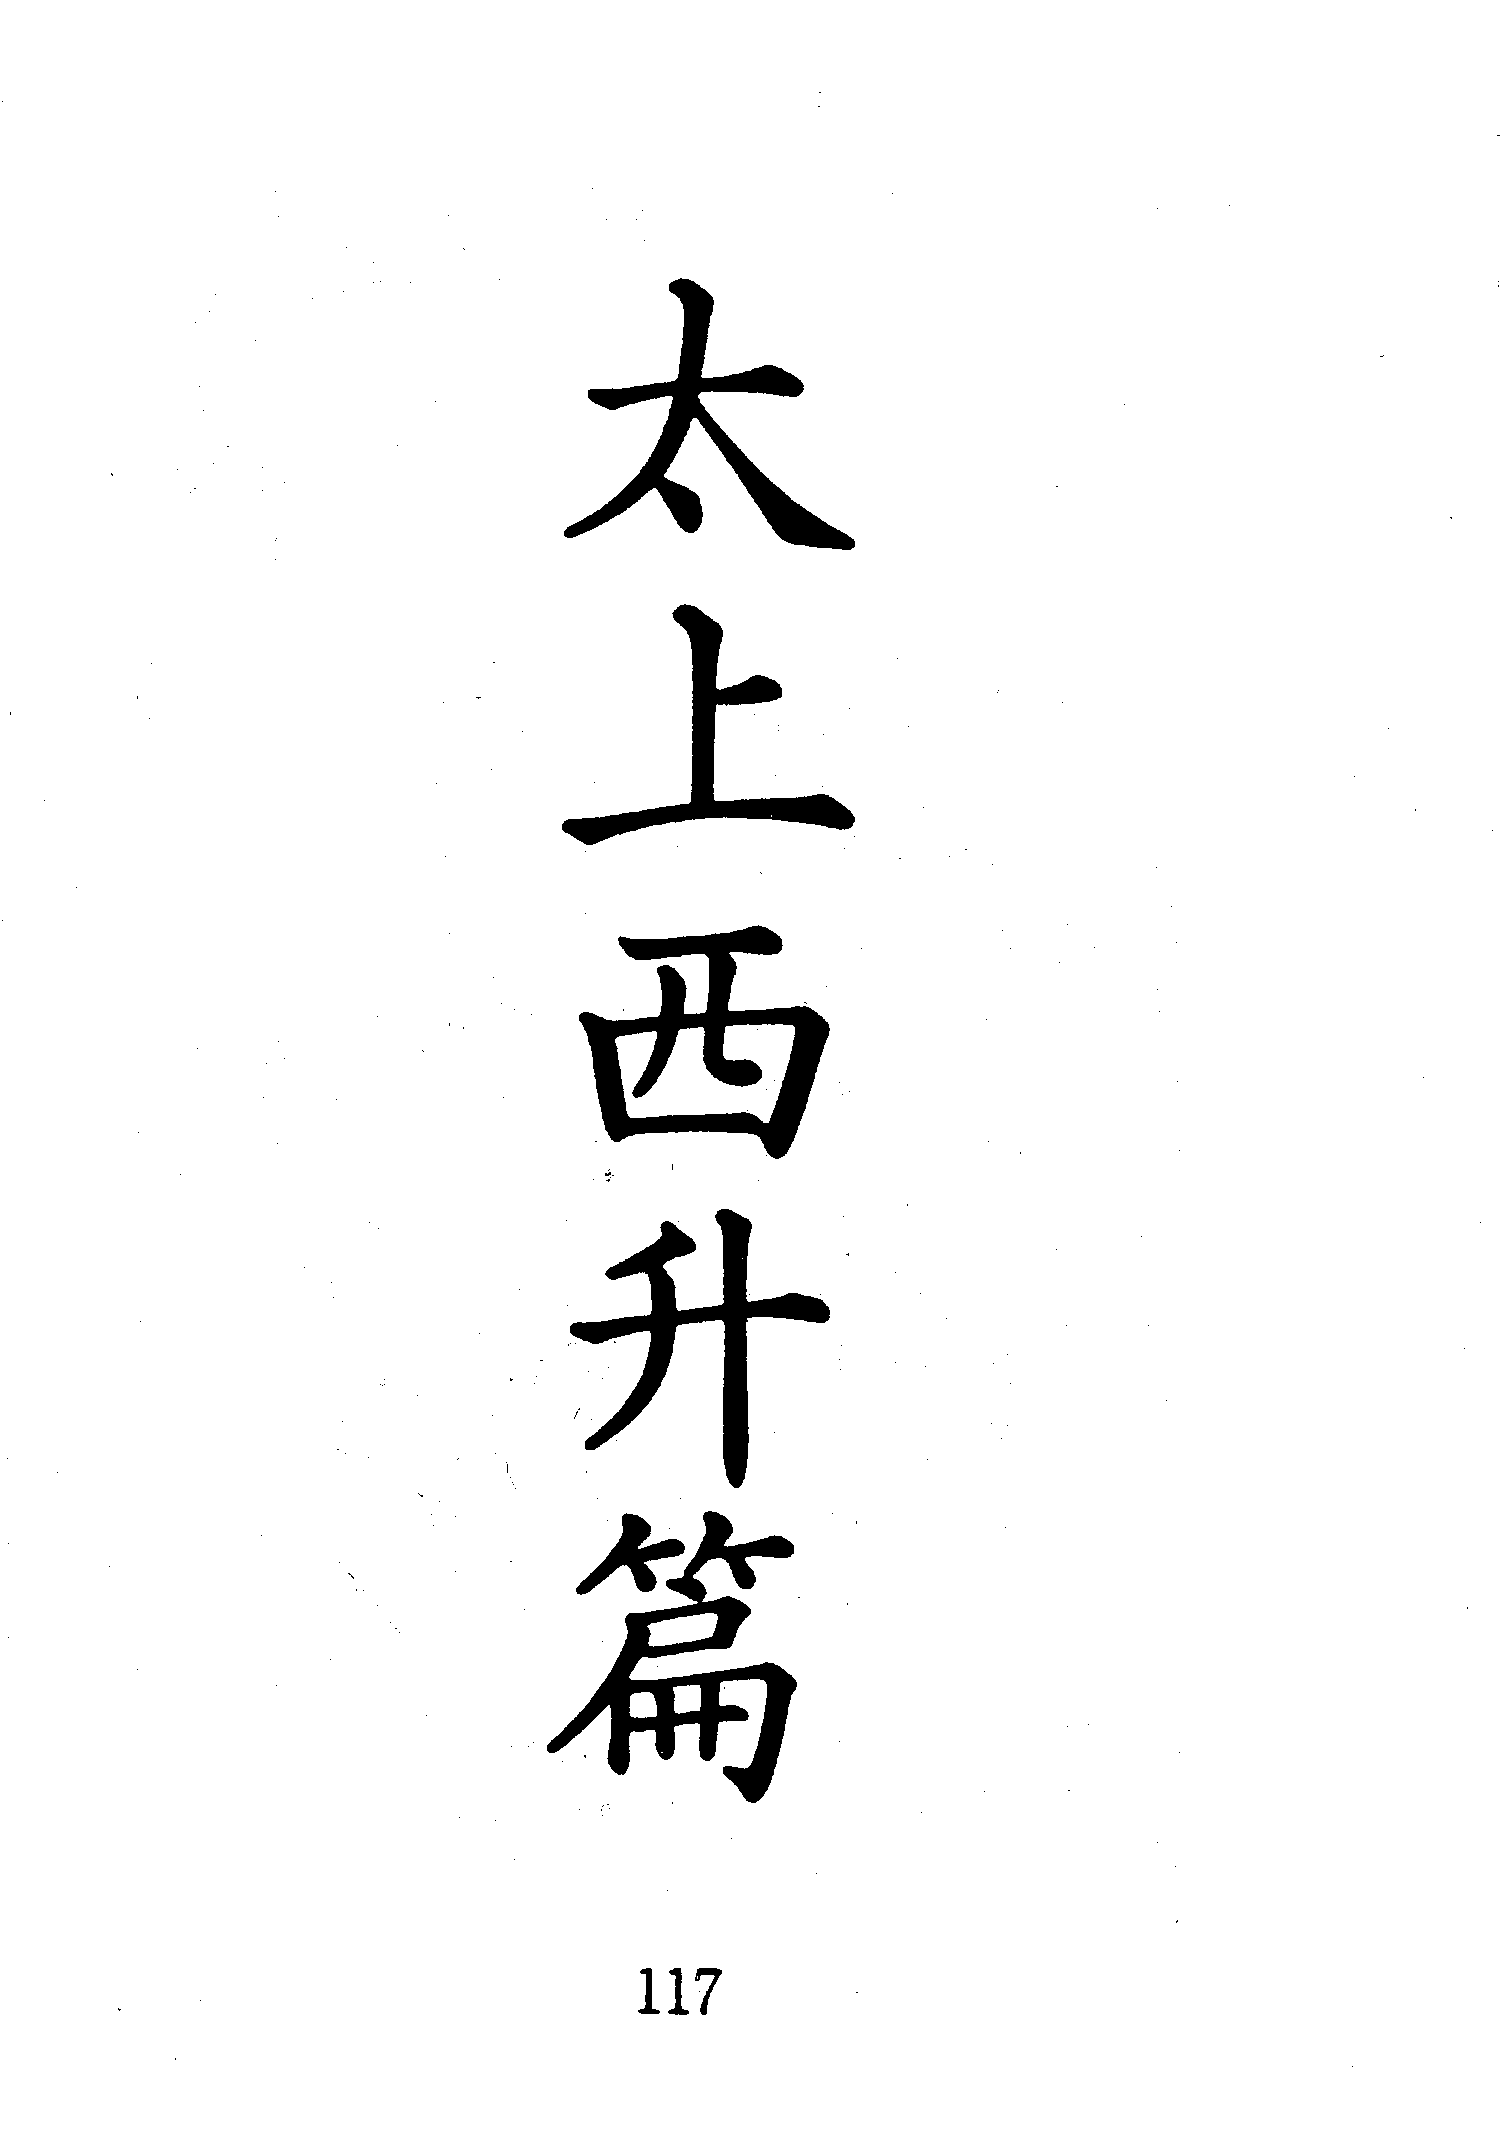 太上西升篇
117